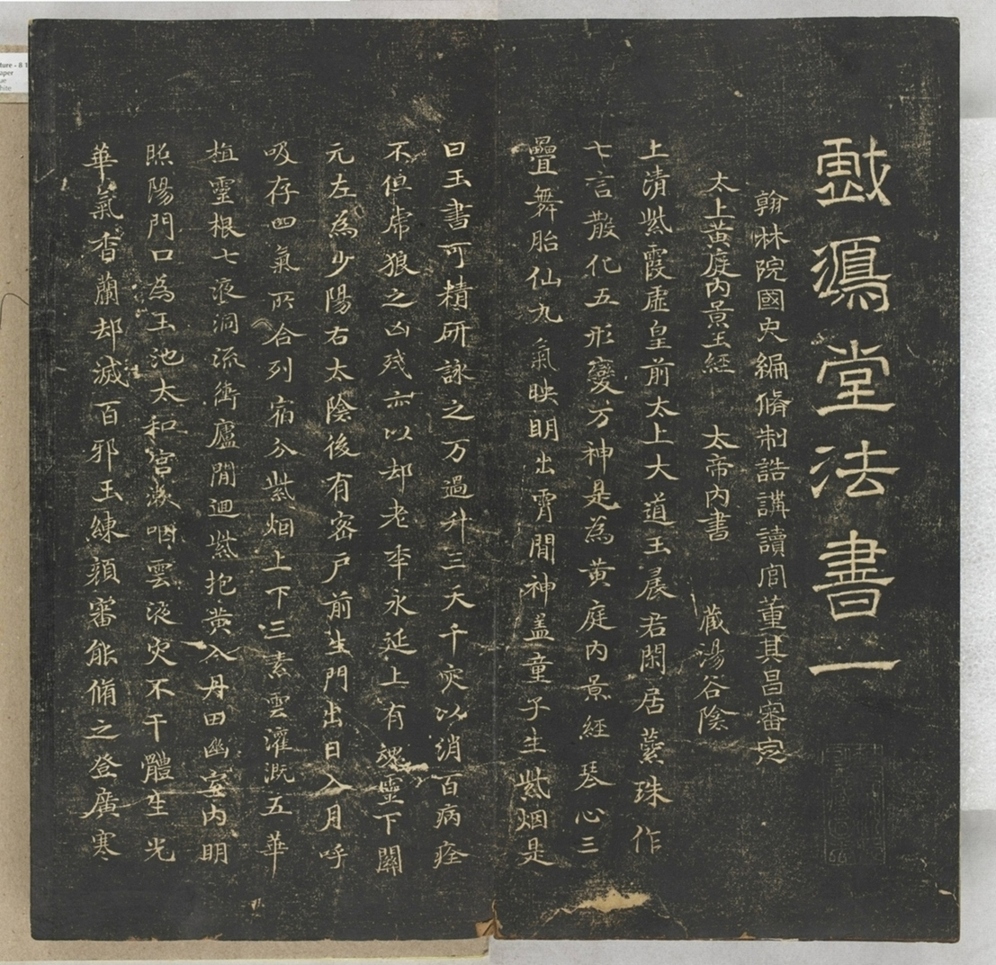 戲鴻堂法書一
翰林院國史編脩制誥講讀官董其昌審定
太上黃庭內景玉經 太帝內書 藏湯谷陰
上清紫霞虛皇前太上大道玉晨君閑居蘂珠作
七言散化五形變万神是為黃庭內景經琴心三
疊舞胎仙九氣映明出霄間神盖童子生紫烟是
曰玉書可精研詠之万過升三天千灾以消百病痊
不憚虎狼之凶残亦以却老年永延上有魂靈下關
元左為少陽右太陰後有密户前生門出日入月呼
吸存四氣所合列宿分紫烟上下三素雲灌溉五華
植靈根七液洞流衝廬間迴紫抱黃入丹田幽室內明
照陽門口為玉池太和宮漱咽靈液灾不干體生光
華氣香蘭却滅百邪玉練顏審能脩之登廣寒